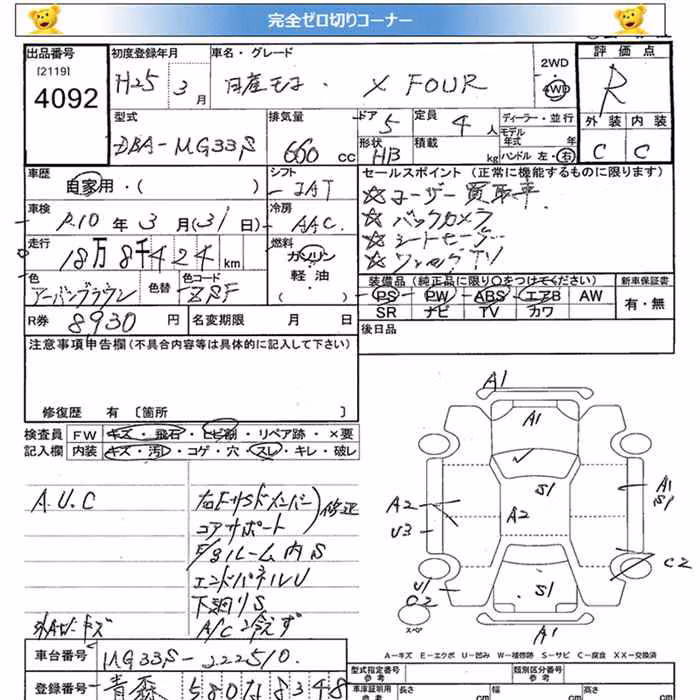 完全ゼロ切りコーナー
出品番号
[2119]
4092
初度登録年月
H25 3月
車名・グレード
日産モコ . X FOUR
2WD
4WD
評価点
R
外装 内装
C C
型式
DBA-MG33S
排気量
660 cc
ドア
5
形状
HB
定員
4 人
積載
kg
ディーラー・並行
モデル年式 年
ハンドル 左・右
車歴
自家用・( )
シフト
IAT
車検
R.10年3月(31日)
冷房
AAC
走行
18万8千424 km
燃料
ガソリン
軽・油
( )
色
アーバンブラウン
色替
色コード
ZSF
R券 8930 円
名変期限 月 日
セールスポイント (正常に機能するものに限ります)
☆ユーザー買取車
☆バックカメラ
☆シートヒーター
☆ワンセグTV
装備品 (純正品に限り〇をつけてください)
PS PW ABS エアB AW
SR ナビ TV カワ
新車保証書
有・無
後日品
注意事項申告欄 (不具合内容等は具体的に記入して下さい)
修復歴 有 〔箇所 〕
検査員 FW キズ・飛石・ヒビ割・リペア跡・×要
記入欄 内装 キズ・汚レ・コゲ・穴・スレ・キレ・破レ
A.U.C
右Fサイドメンバー
コアサポート
修正
F/gルーム内S
エンドパネルU
下廻りS
A/C冷えず
外Aサビキズ
A1
A1
S1
A2
A2
U3
A1
S1
C2
U1
C2
S1
A1
スペア
A-キズ E-エクボ U-凹み W-補修跡 S-サビ C-腐食 XX-交換済
車台番号 MG33S-222510.
登録番号 青森 580 1 8348
型式指定番号
参考
類別区分番号
参考
車庫証明用
参考
長さ cm
幅 cm
高さ cm